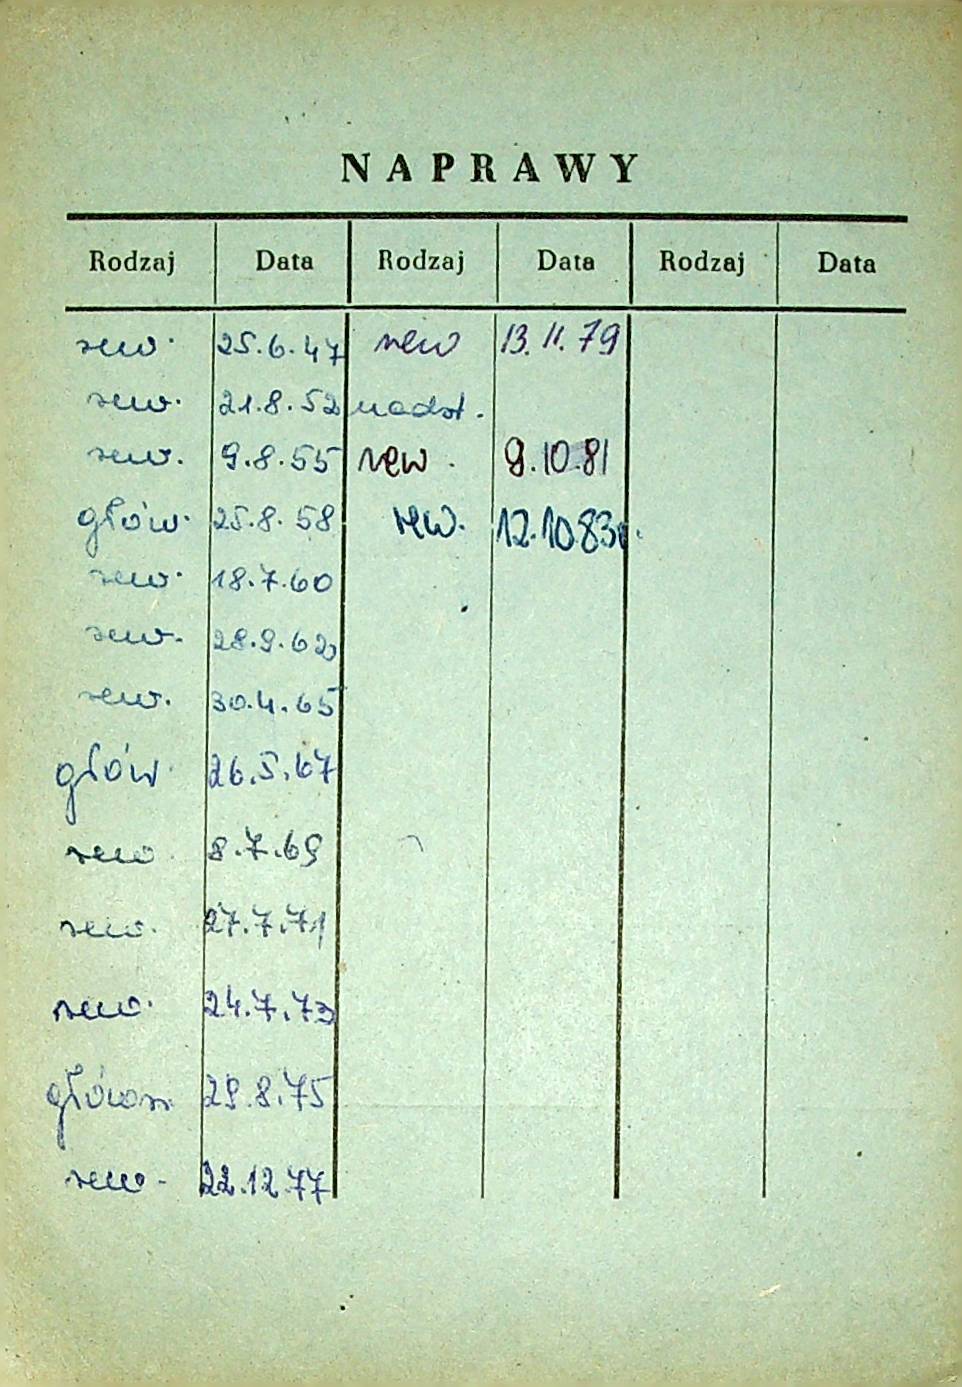 NAPRAWY
Rodzaj Data Rodzaj Data Rodzaj Data
rew. 25.6.47 rew 13.11.79
rew. 21.8.52 nadst.
rew. 9.8.55 rew. 9.10.81
głów. 25.8.58 rew. 12.10.83r.
rew. 18.7.60
rew. 28.9.62
rew. 30.4.65
głów. 26.5.67
rew. 8.7.69
rew. 27.7.71
rew. 24.7.73
główn. 29.8.75
rew. 22.12.77